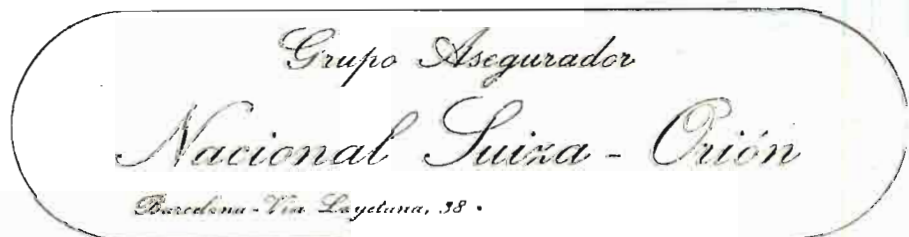 Grupo Asegurador
Nacional Suiza - Orión
Barcelona - Vía Layetana, 38 -